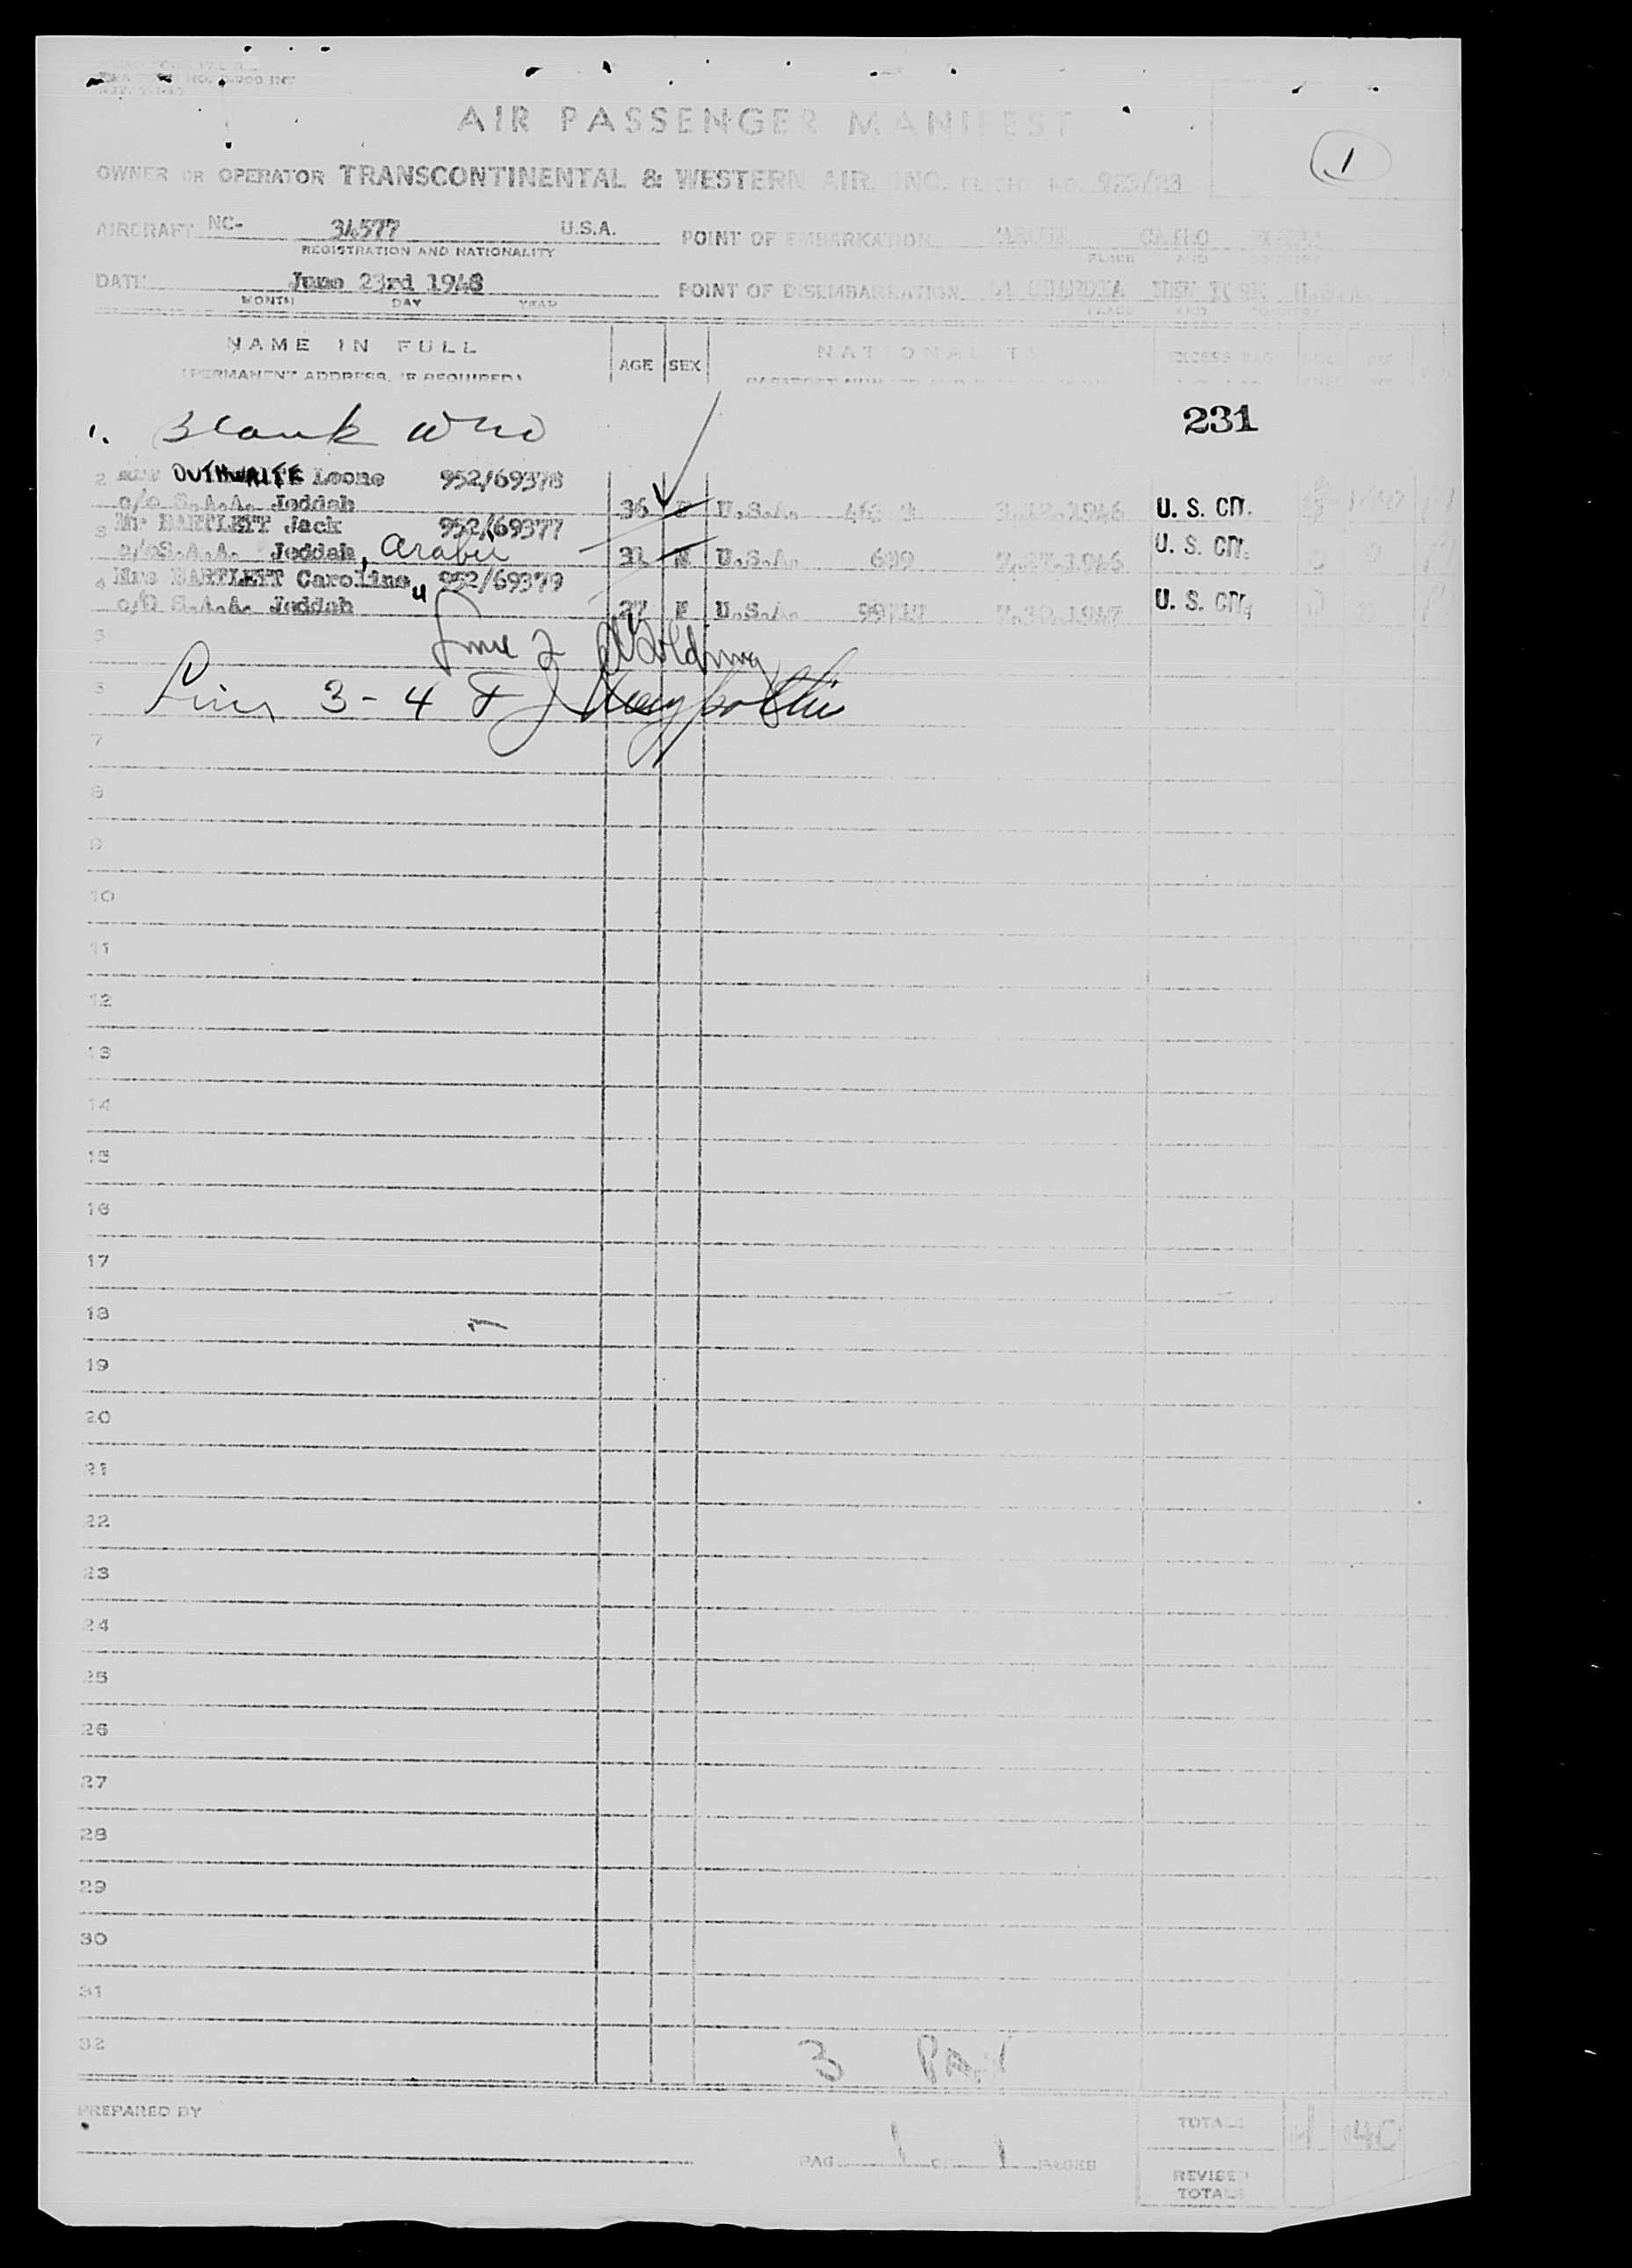 AIR PASSENGER MANIFEST
1
OWNER OR OPERATOR TRANSCONTINENTAL & WESTERN AIR, INC. FLIGHT NO.
AIRCRAFT NC- 34577 U.S.A. POINT OF EMBARKATION CAIRO
REGISTRATION AND NATIONALITY PLACE AND COUNTRY
DATE June 23rd 1948 POINT OF DISEMBARKATION LA GUARDIA NEW YORK U.S.A.
MONTH DAY YEAR PLACE AND COUNTRY
NAME IN FULL AGE SEX NATIONALITY EXCESS BAG
(PERMANENT ADDRESS, IF REQUIRED)
231
1. Blank
2 OUTHWAITE Leone 952/69378
c/o S.A.A. Jeddah 36 F U.S.A. 3.12.1946 U. S. CIT.
3 Mr BARTLETT Jack 952/69377
c/oS.A.A. Jeddah, Arabia 31 M U.S.A. 1946 U. S. CIT.
4 Mrs BARTLETT Caroline 952/69379
c/o S.A.A. Jeddah 27 F U.S.A. 7.30.1947 U. S. CIT.
5
Line 2
6 Lines 3-4
7
8
9
10
11
12
13
14
15
16
17
18
19
20
21
22
23
24
25
26
27
28
29
30
31
32
3 PAX
PREPARED BY
TOTALS
PAGE 1 OF 1 PAGES
REVISED
TOTALS